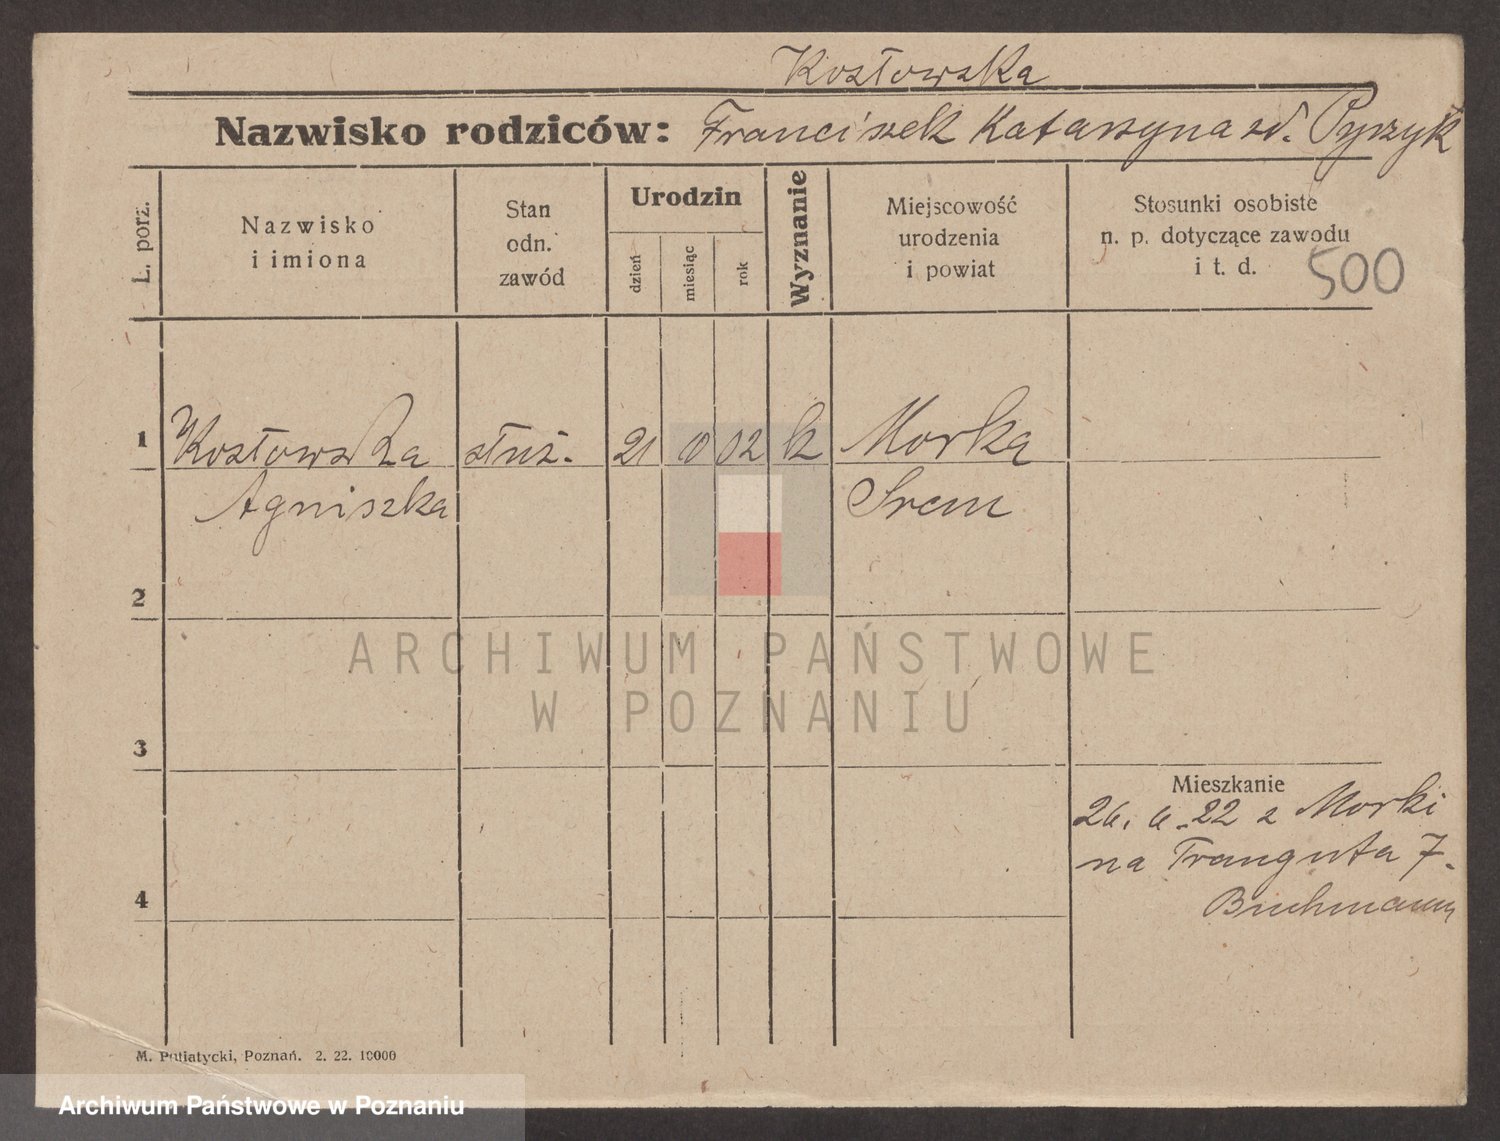 Kozłowska
Nazwisko rodziców: Franciszek Katarzyna zd. Pyszyk
L. porz.
Nazwisko
i imiona
Stan
odn.
zawód
Urodzin
dzień
miesiąc
rok
Wyznanie
Miejscowość
urodzenia
i powiat
Stosunki osobiste
n. p. dotyczące zawodu
i t. d.
500
1
Kozłowska służ. 21 02 k Morka
Agniszka Srem
2
3
4
Mieszkanie
26. 6. 22 z Morki
na Trauguta 7.
M. Putiatycki, Poznań. 2. 22. 10000
ARCHIWUM PAŃSTWOWE
W POZNANIU
Archiwum Państwowe w Poznaniu